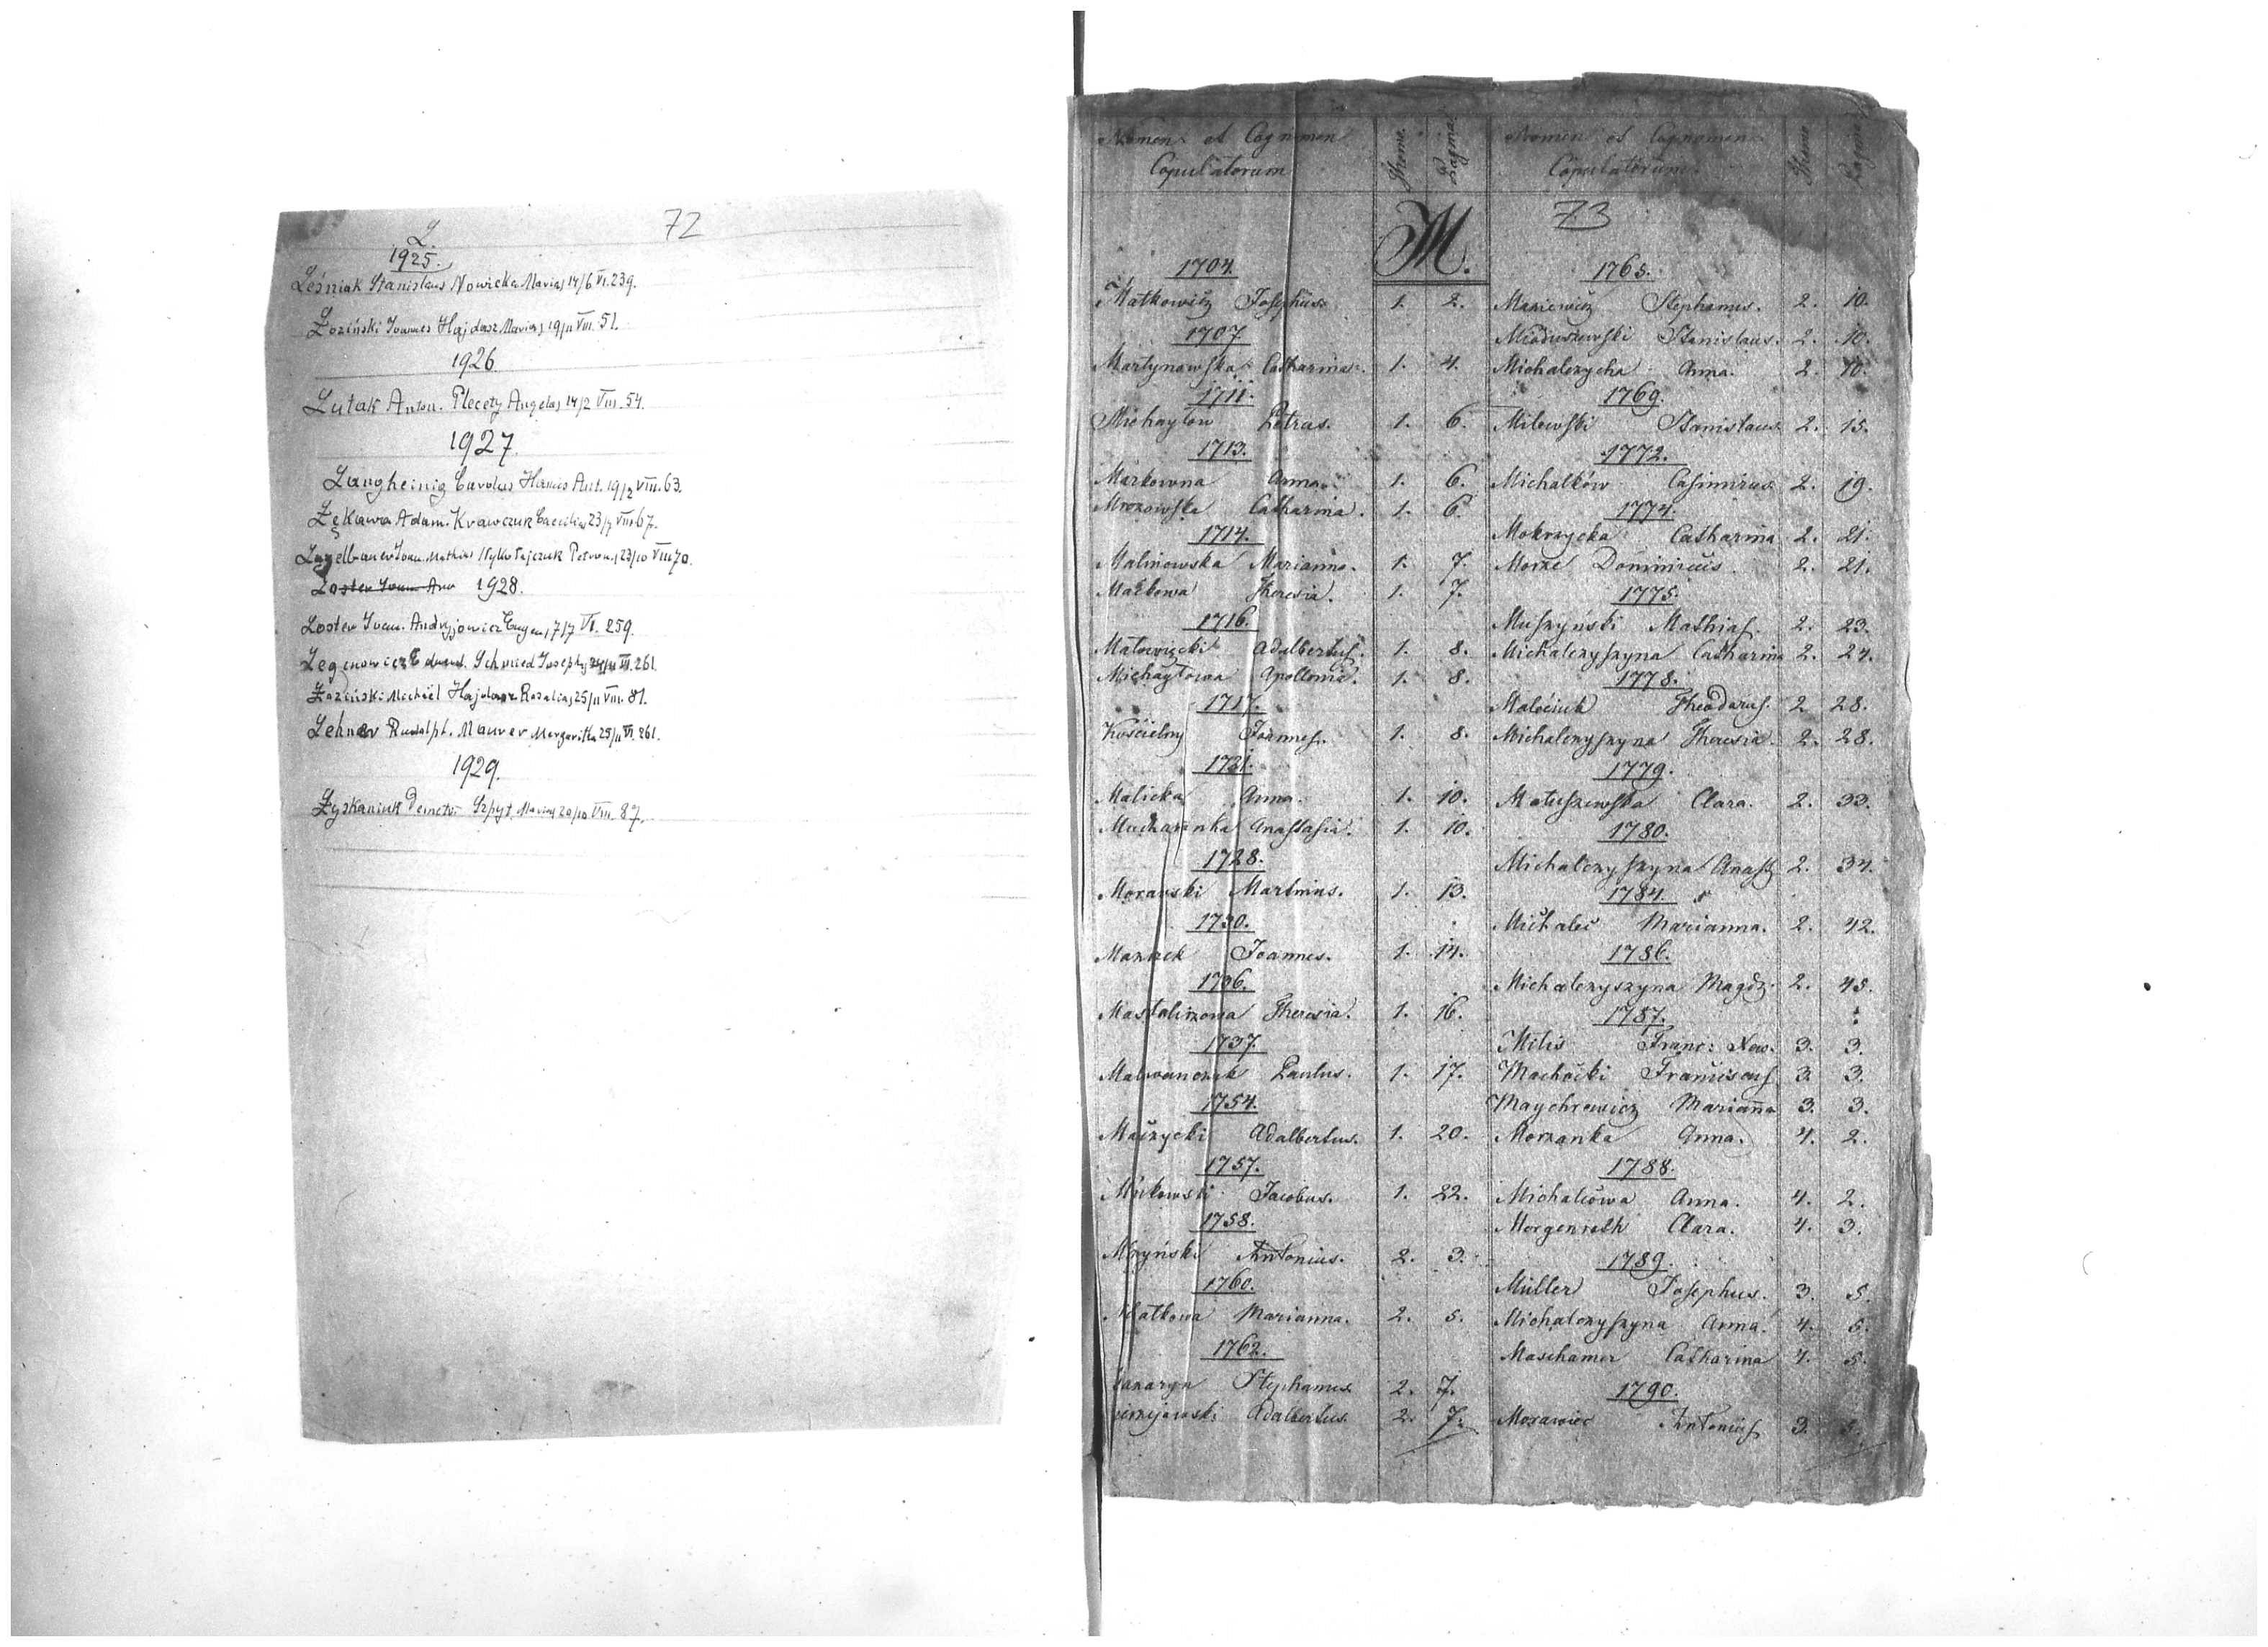 72
L.
1925.
Leśniak Stanislaus Nowicka Maria, 14/6 VI. 239.
Łoziński Ioannes Hajdasz Maria, 19/11 VIII. 51.
1926
Lutak Anton. Plecety Angela, 14/2 VIII. 54.
1927.
Langheinig Carolus Ant. 19/2 VIII. 63.
Łękawa Adam. Krawczuk Caecilia, 23/7 VIII 67.
Ioan. Mathias Petron., 23/10 VIII 70.
1928.
Loster Ioan. Andryjowicz Eugen, 7/7 VI. 259.
Schmied Joseph, VI. 261.
Łoziński Michael Hajdasz Rosalia, 25/11 VIII. 81.
Lehner Rudolph. Maurer Margaritha 25/11 VI. 261.
1929.
Łyskaniuk Demetr. Szpyt Maria, 20/10 VIII. 87.
Nomen et Cognomen Copulatorum
Thomo.
Pagina.
M.
1704.
Matkowicz Josephus. 1. 2.
1707.
Martynowska Catharina. 1. 4.
1711.
Michayłow Petrus. 1. 6.
1713.
Markowna Anna. 1. 6.
Mrozowska Catharina. 1. 6.
1714.
Malinowska Marianna. 1. 7.
Theresia. 1. 7.
1716.
Adalbertus. 1. 8.
Michayłowa Apollonia. 1. 8.
1717.
Kościelny Joannes. 1. 8.
1721.
Malicka Anna. 1. 10.
Anastasia. 1. 10.
1728.
Morawski Martinus. 1. 13.
1730.
Joannes. 1. 14.
1736.
Mastalirzowa Theresia. 1. 16.
1737.
Paulus. 1. 17.
1754.
Adalbertus. 1. 20.
1757.
Jacobus. 1. 22.
1758.
Antonius. 2. 3.
1760.
Marianna. 2. 5.
1762.
Stephanus 2. 7.
Adalbertus 2. 7.
Nomen et Cognomen Copulatorum.
Thomo
Pagina
73
1765.
Stephanus. 2. 10.
Stanislaus. 2. 10.
Michalczycha Anna. 2. 10.
1769.
Milewski Stanislaus 2. 15.
1772.
Michalków Casimirus 2. 19.
1774.
Mokrzycka Catharina 2. 21.
Dominicus. 2. 21.
1775.
Muszyński Mathias. 2. 23.
Michalczyszyna Catharina 2. 24.
1778.
Theodorus. 2 28.
Michalczyszyna Theresia. 2. 28.
1779.
Matuszewska Clara. 2. 33.
1780.
Michalczyszyna Anast. 2. 34.
1784.
Marianna. 2. 42.
1786.
Michalczyszyna Magdz. 2. 45.
1787.
Milis Franc: Xav. 3. 3.
Machocki Franciscus 3. 3.
Maychrowicz Marianna 3. 3.
Morzanka Anna. 4. 2.
1788.
Anna. 4. 2.
Morgenroth Clara. 4. 3.
1789.
Müller Josephus. 3. 5.
Michalczyszyna Anna. 4. 5.
Maschamer Catharina 4. 5.
1790.
Morawiec Antonius 3. 5.